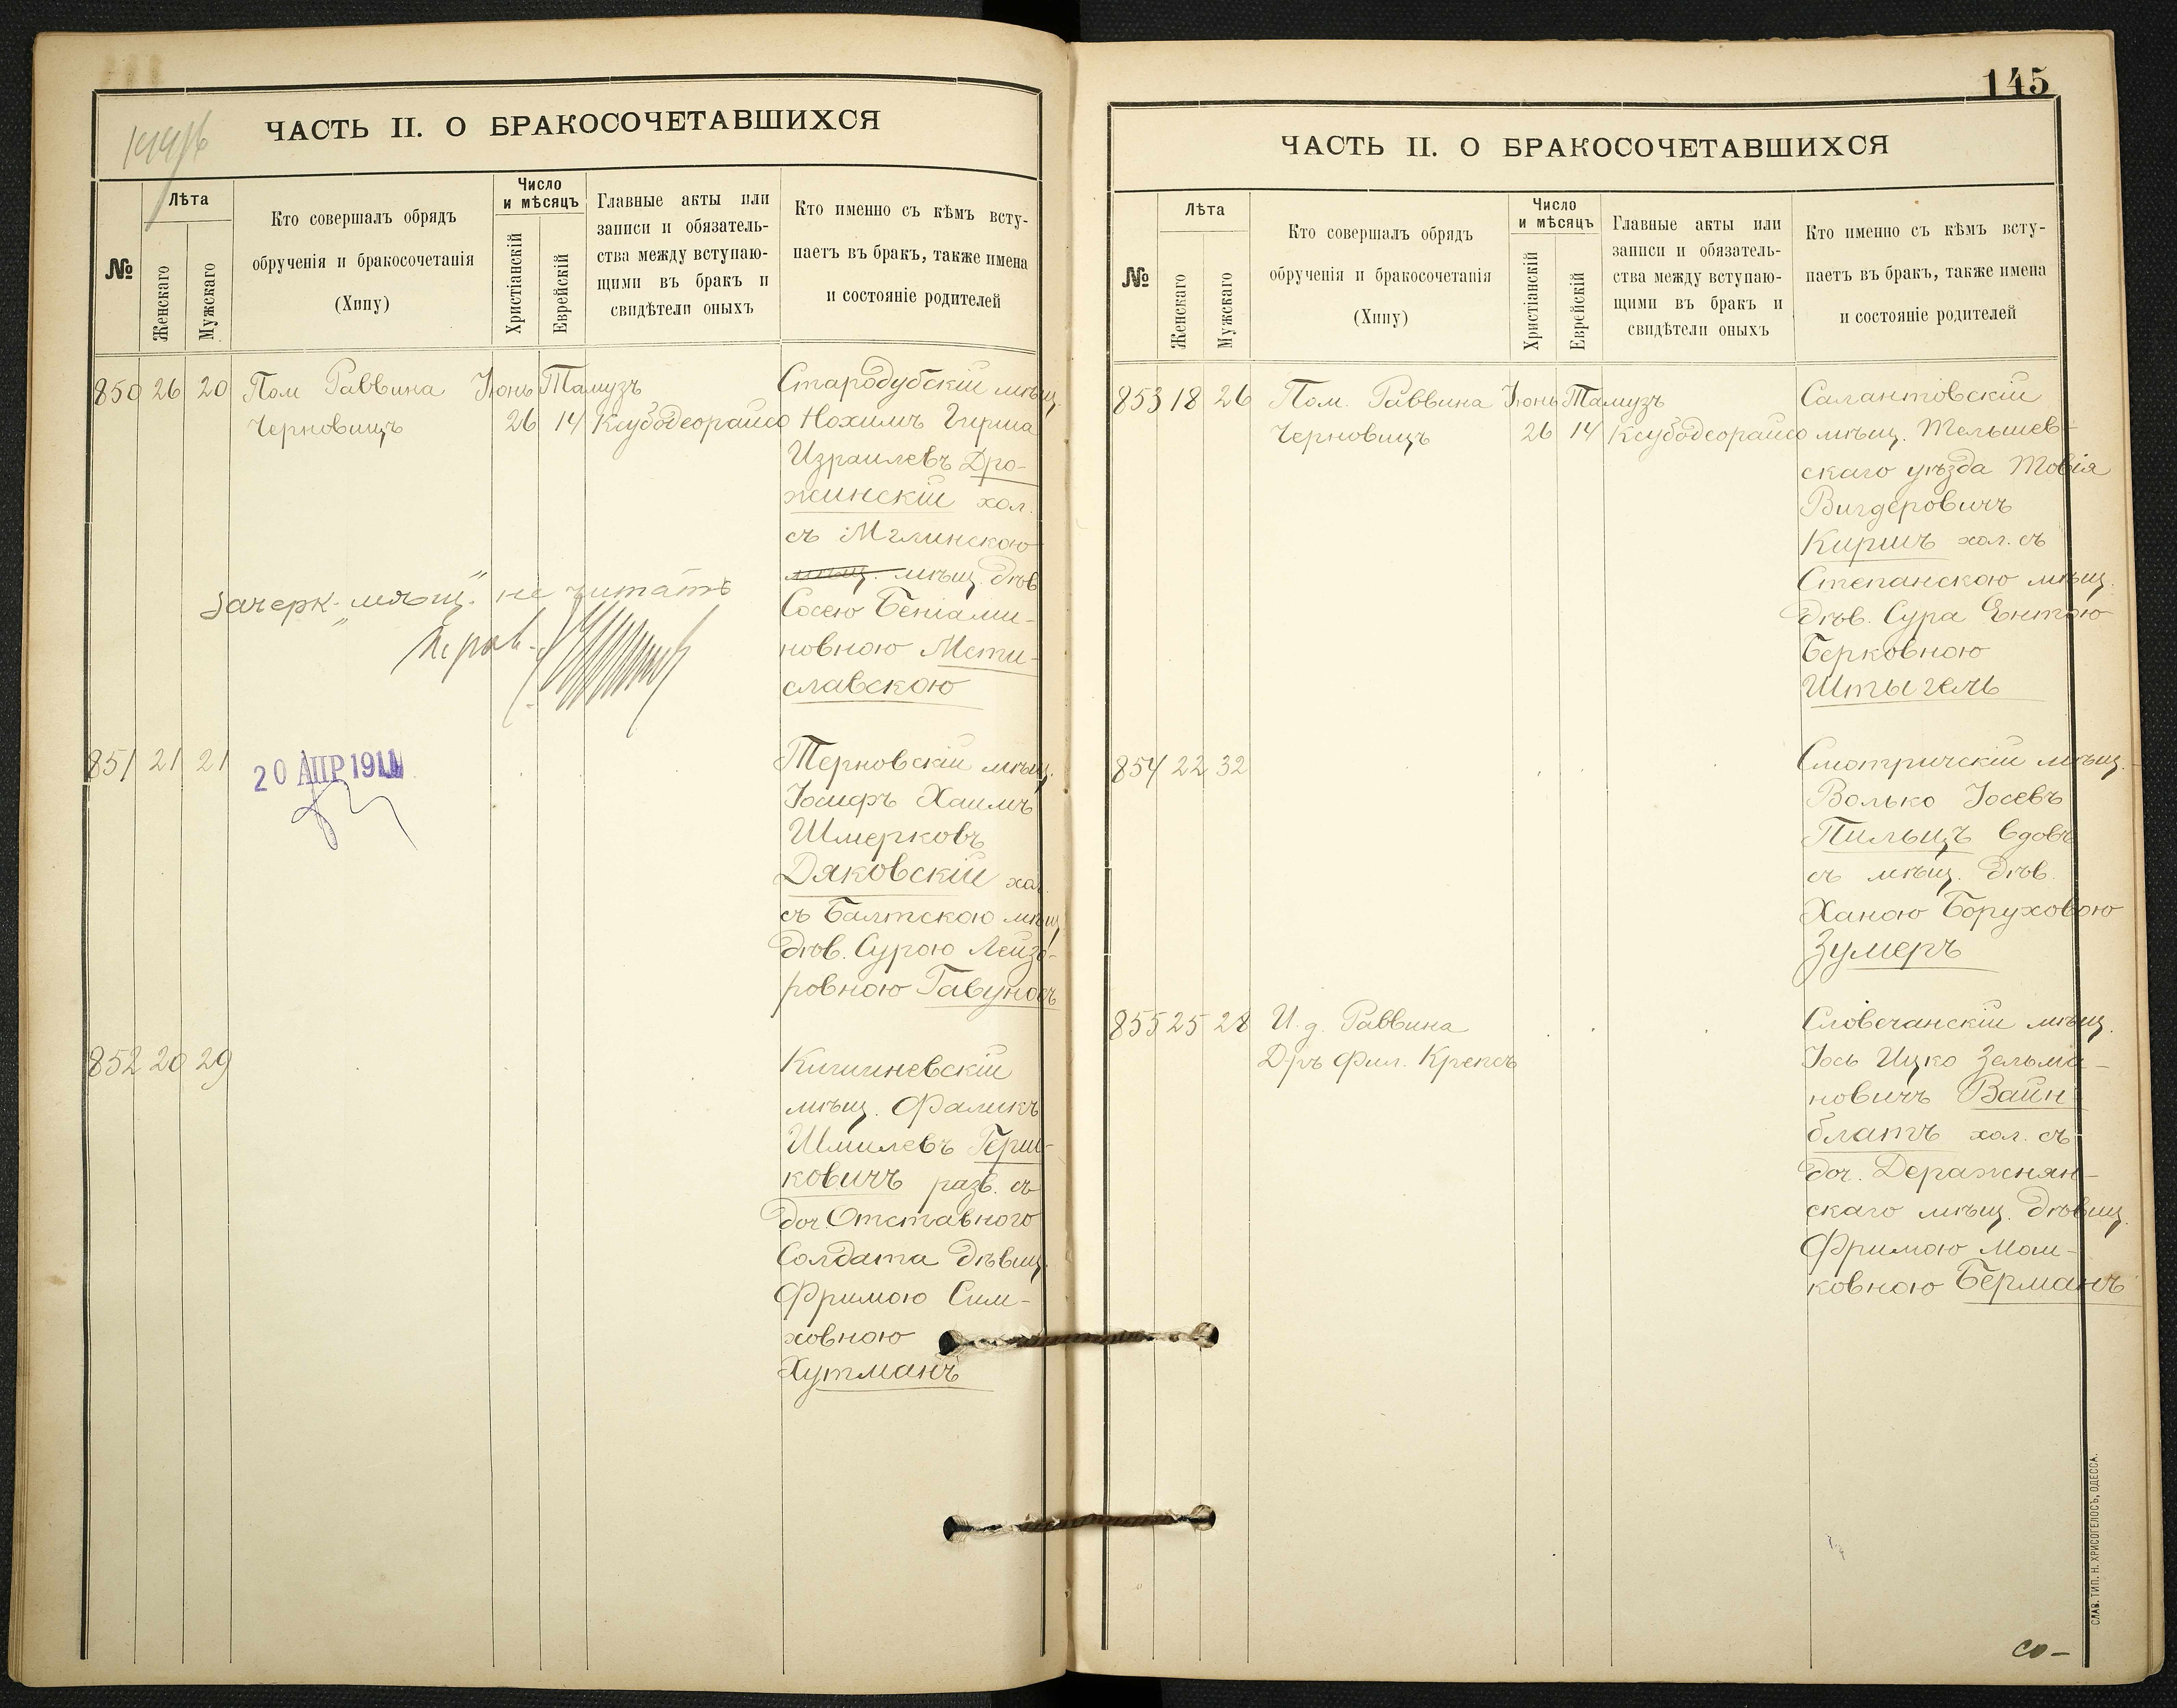 144/6
ЧАСТЬ II. О БРАКОСОЧЕТАВШИХСЯ
№
Лѣта
Женскаго
Мужскаго
Кто совершалъ обрядъ
обрученія и бракосочетанія
(Хипу)
Число
и мѣсяцъ
Христіанскій
Еврейскій
Главные акты или
записи и обязатель-
ства между вступаю-
щими въ бракъ и
свидѣтели оныхъ
Кто именно съ кѣмъ всту-
паетъ въ бракъ, также имена
и состояніе родителей
850 26 20 Пом Раввина Іюнь Тамузъ Стародубскій мѣщ.
Черновицъ 26 14 Ксубодеорайсо Нохимъ Гирша
Израилевъ Дро-
жинскій хол.
съ Мглинскою
мѣщ. мѣщ. дѣв
Сосею Беніами-
новною Мсти-
славскою
Зачерк. „мѣщ." не читать
851 21 21 Терновскій мѣщ.
20 АПР 1911
Іосифъ Хаимъ
Шмерковъ
Дяковскій хол.
съ Балтскою мѣщ
дѣв. Сурою Лейзо-
ровною Гавуносъ
852 20 29 Кишиневскій
мѣщ. Фаликъ
Шмилевъ Герш-
ковичъ разв. съ
доч. Отставного
Солдата дѣвиц.
Фримою Сим-
ховною
Хутманъ
145
ЧАСТЬ II. О БРАКОСОЧЕТАВШИХСЯ
№
Лѣта
Женскаго
Мужскаго
Кто совершалъ обрядъ
обрученія и бракосочетанія
(Хипу)
Число
и мѣсяцъ
Христіанскій
Еврейскій
Главные акты или
записи и обязатель-
ства между вступаю-
щими въ бракъ и
свидѣтели оныхъ
Кто именно съ кѣмъ всту-
паетъ въ бракъ, также имена
и состояніе родителей
853 18 26 Пом. Раввина Іюнь Тамузъ Салантовскій
Черновицъ 26 14 Ксубодеорайсо мѣщ. Тельшев-
скаго уѣзда Товія
Вигдеровичъ
Киршъ хол. съ
Степанскою мѣщ.
дѣв. Сура Ентою
Берковною
Штыгель
854 22 32 Смотричскій мѣщ.
Волько Іосевъ
Пильцъ вдовъ
съ мѣщ. дѣв.
Ханою Боруховою
Зумеръ
855 25 28 И. д. Раввина Словечанскій мѣщ.
Д-ръ Фил. Крепсъ Іось Ицко Зельма-
новичъ Вайн-
блатъ хол. съ
доч. Деражнян-
скаго мѣщ. дѣвиц.
Фримою Мош-
ковною Берманъ
СЛАВ. ТИП. Н. ХРИСОГЕЛОСЪ, ОДЕССА.
со-